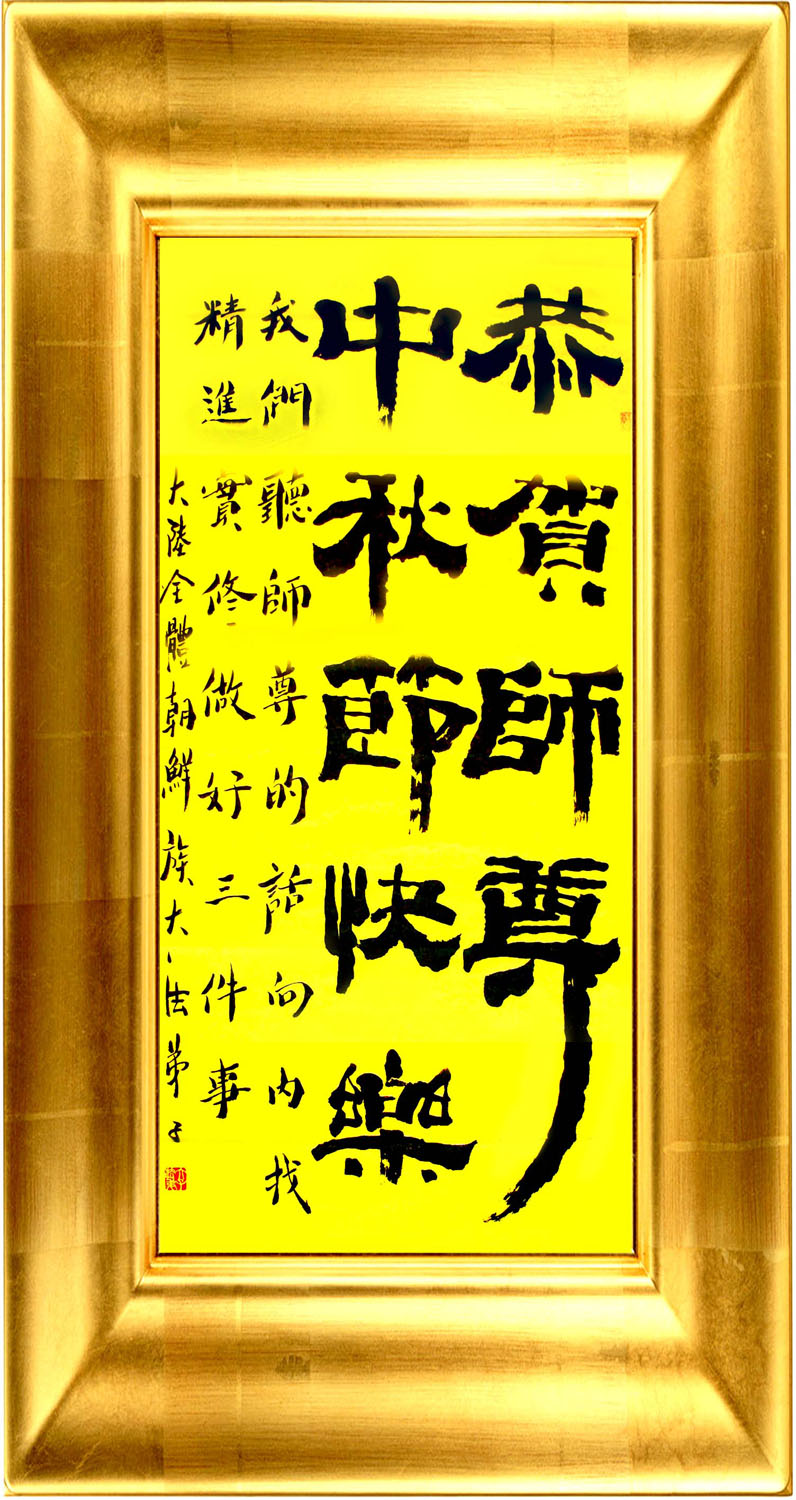 恭賀師尊
中秋節快樂
我們聽師尊的話向内找
精進實修做好三件事
大陸全體朝鮮族大法弟子